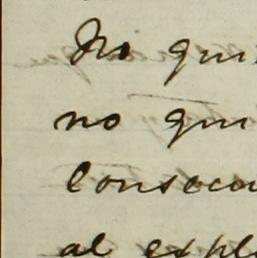 No qui
no qui
Consecu
al expl